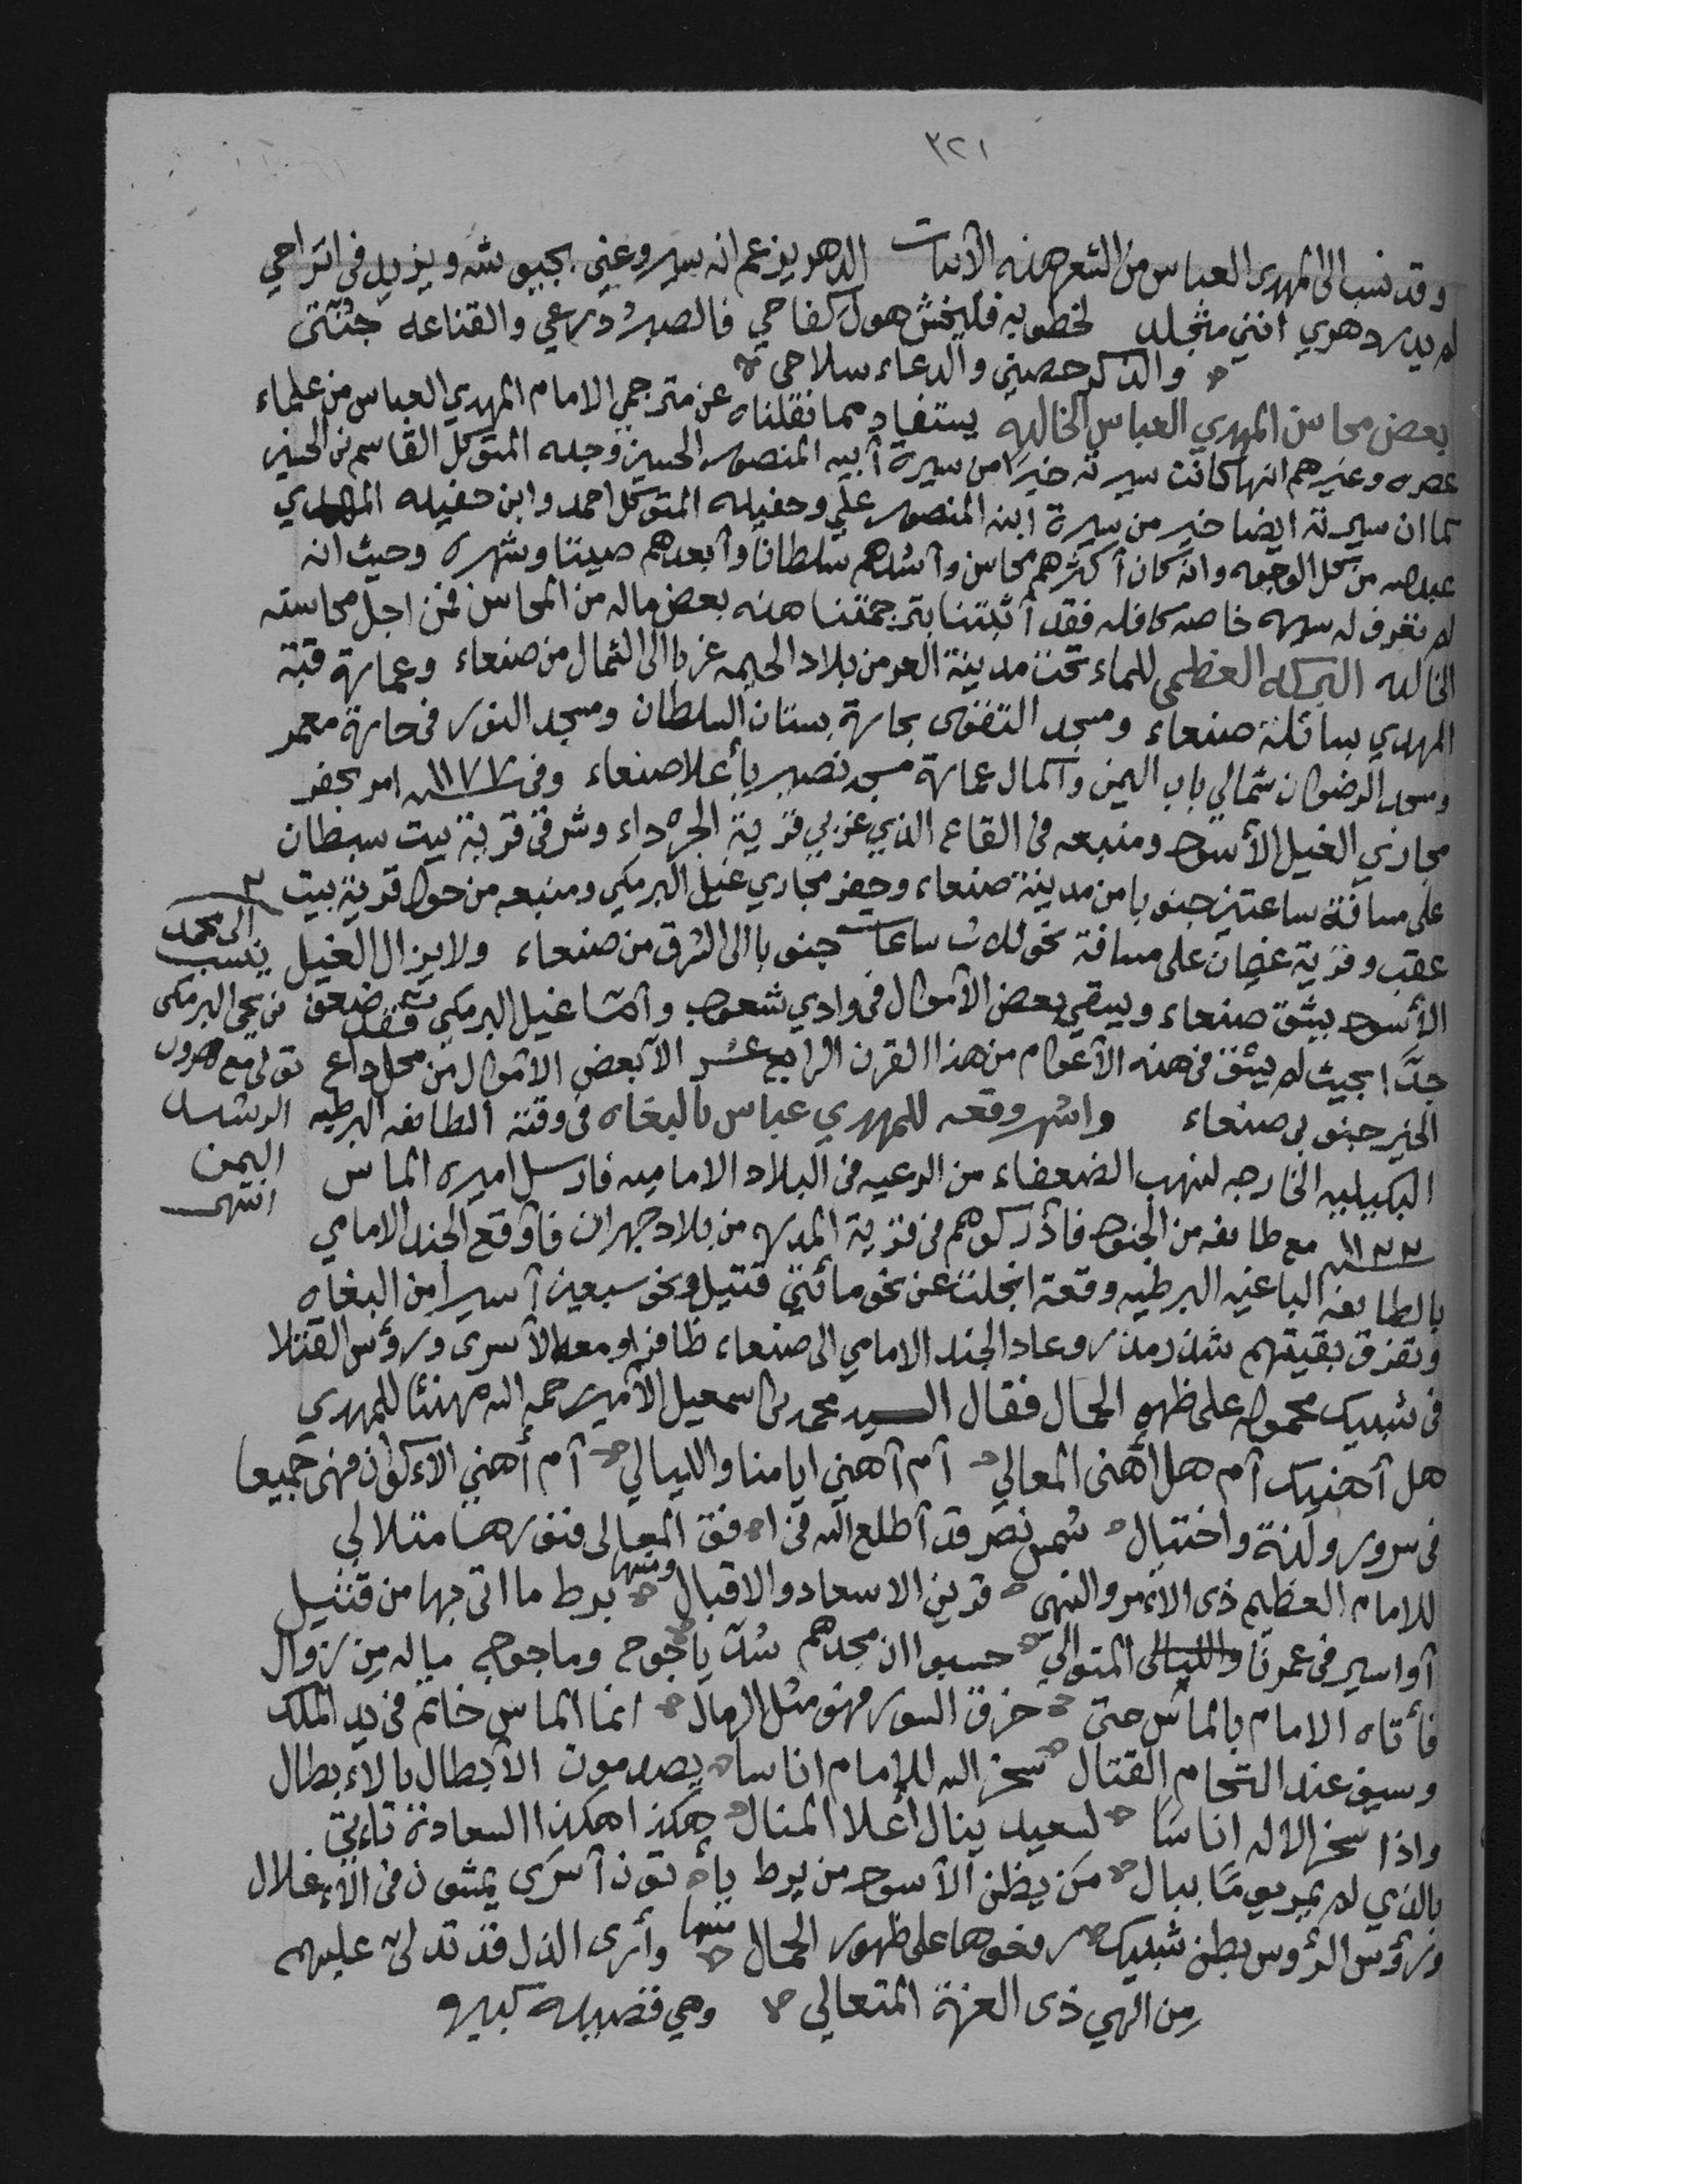 ٣٢١
وقد نسب الى المهدي العباس من الشعر هذه الأبيات الدهر يزعم انه سيروعني بجيوشه ويزيد في اتراحي
لم يدر دهري انني متجلد لخطوبه فليخش هول كفاحي فالصبر درعي والقناعه جنتي
والذكر حصني والدعاء سلاحي
بعض محاسن المهدي العباس الخالده يستفاد مما نقلناه عن مترجمي الامام المهدي العباس من علماء
عصره وغيرهم انها كانت سيرته خيرا من سيرة أبيه المنصور الحسين وجده المتوكل القاسم بن الحسين
كما ان سيرته ايضا خير من سيرة ابنه المنصور علي وحفيده المتوكل احمد وابن حفيده المهدي
عبدالله من كل الوجوه وانه كان أكثرهم محاسن وأشدهم سلطانا وأبعدهم صيتا وشهرة وحيث انه
لم نعرف له سيره خاصه كافله فقد أثبتنا بترجمتنا هذه بعض ماله من المحاسن فمن اجل محاسنه
الخالده البركه العظمى للماء تحت مدينة العر من بلاد الحيمه غربا الى الشمال من صنعاء وعمارة قبة
المهدي بسائلة صنعاء ومسجد التقوى بحارة بستان السلطان ومسجد النور في حارة معمر
ومسجد الرضوان شمالي باب اليمن وآكمال عمارة مسجد نصير بأعلا صنعاء وفي ١١٧٧ سنه امر بحفر
مجاري الغيل الأسود ومنبعه في القاع الذي غربي قرية الجرداء وشرقي قرية بيت سبطان
على مسافة ساعتين جنوبا من مدينة صنعاء وحفر مجاري غيل البرمكي ومنبعه من حول قرية بيت
عقب وقرية غضان على مسافة نحو ثلاث ساعات جنوبا الى الشرق من صنعاء ولا يزال الغيل
الأسود يشق صنعاء ويسقي بعض الأموال في وادي شعوب وأما غيل البرمكي فقد ضعف
جدًّا بحيث لم يشق في هذه الأعوام من هذا القرن الرابع عشر الا بعض الاموال من محل داع
الخير جنوبي صنعاء واشهر وقعه للمهدي عباس بالبغاه في وقته الطائفه البرطيه
البكيليه الخارجه لنهب الضعفاء من الرعيه في البلاد الاماميه فارسل اميره الماس
مع طائفه من الجنود فأدركوهم في قرية المدره من بلاد جهران فأوقع الجند الامامي
بالطائفه الباغيه البرطيه وقعة انجلت عن نحو مائتي قتيل ونحو سبعين أسيرا من البغاه
وتفرق بقيتهم شذر مذر وعاد الجند الامامي الى صنعاء ظافرا ومعه الأسرى ورؤس القتلا
في شبيك محموله على ظهور الجمال فقال السيد محمد بن اسمعيل الأمير رحمه الله مهنئا للمهدي
هل أهنيك أم هل أهنى المعالي أم أهني ايامنا والليالي أم أهني الاءكوان فهي جميعا
في سرور ولذة واختيال شمس نصر قد أطلع الله في افق المعالي فنورها متلالي
للامام العظيم ذي الأمر والنهي قرين الاسعاد والاقبال ومنها برط ما اتى بها من قتيل
أو اسير في عمرنا والليالي المتوالي حسبوا ان مجدهم سد يأجوج وماجوج ماله من زوال
فأتاه الامام بالماس حتى خرق السور فهو مثل الرمال انما الماس خاتم في يد الملك
وسيف عند التحام القتال سخر الله للإمام اناسا يصدمون الأبطال بالاءبطال
واذا سخر الاله اناسا لسعيد ينال أعلا المنال هكذا هكذا السعادة تاءتي
بالذي لم يمر يوما ببال من يظن الأسود من برط يأتون أسرى يمشون في الاءغلال
ورؤس الرؤوس بطن شبيك رفعوها على ظهور الجمال منها وأرى الذل قد تدلى عليهم
من الهي ذي العزة المتعالي وهي قصيده كبيره
ينسب الى محمد
بن يحيى البرمكي
تولى مع هرون
الرشيد
اليمن
انتهى